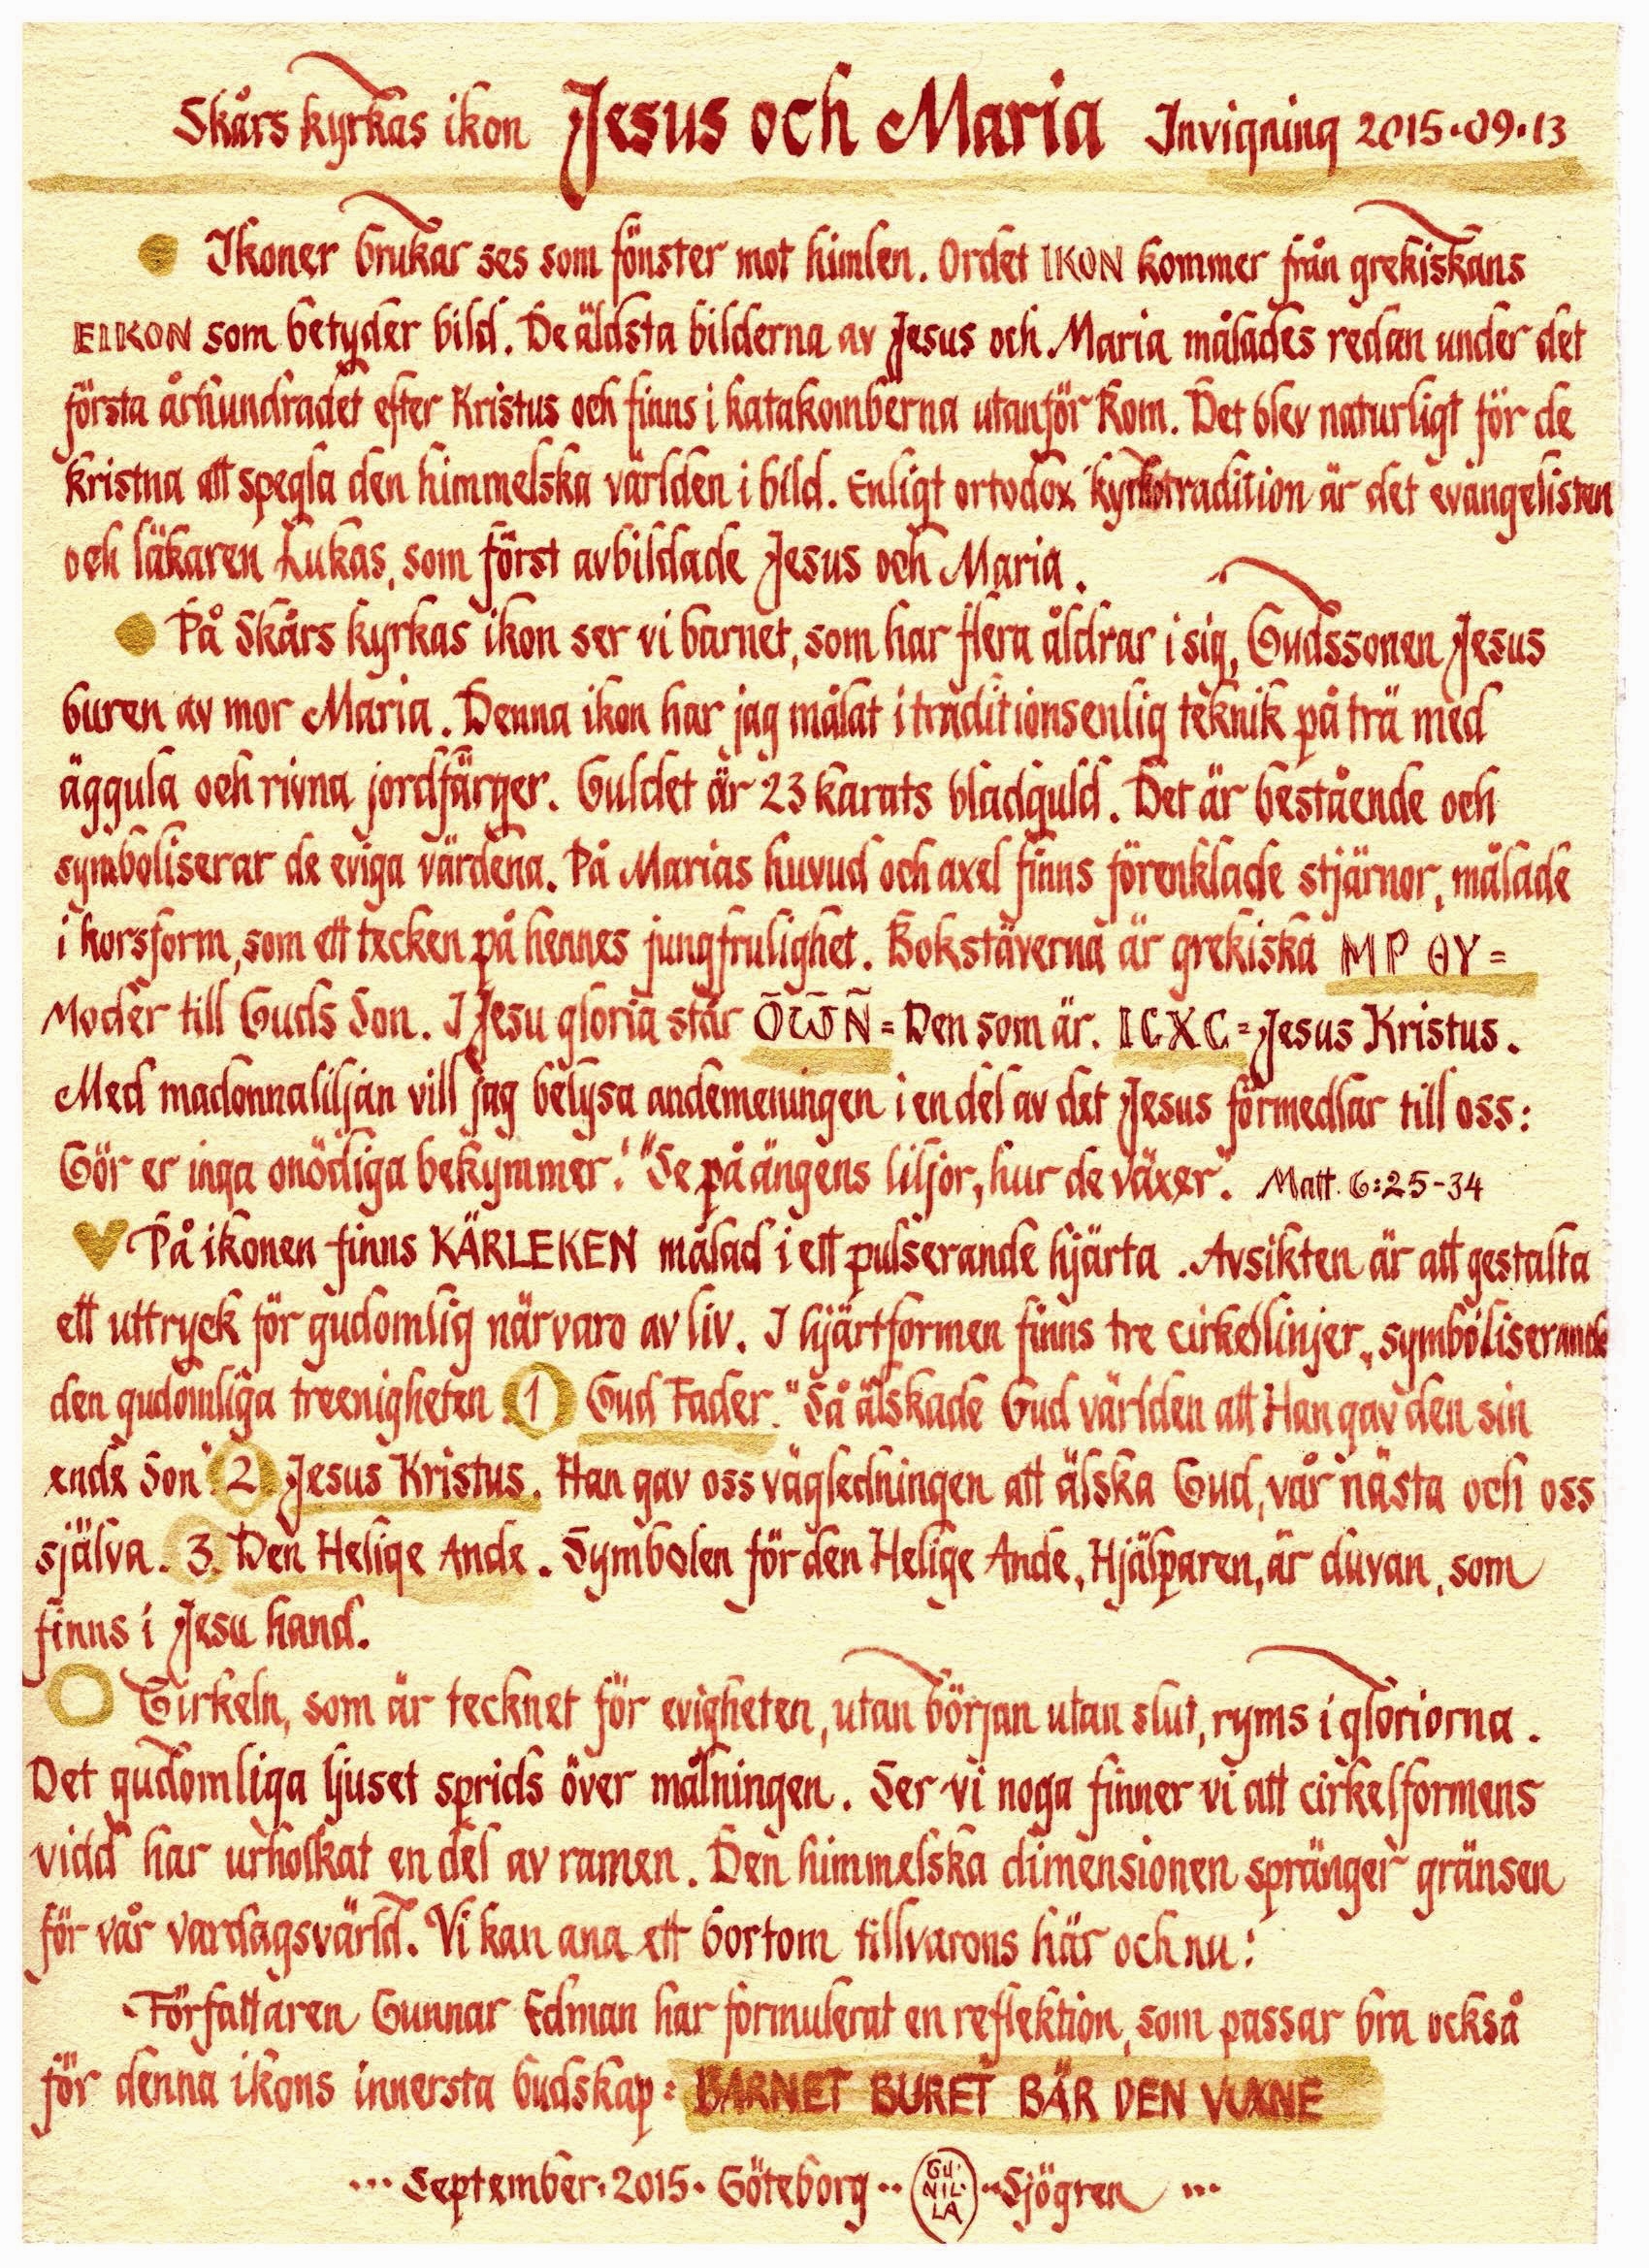 Skårs kyrkas ikon Jesus och Maria Invigning 2015·09·13
Ikoner brukar ses som fönster mot himlen. Ordet IKON kommer från grekiskans
EIKON som betyder bild. De äldsta bilderna av Jesus och Maria målades redan under det
första århundradet efter Kristus och finns i katakomberna utanför Rom. Det blev naturligt för de
kristna att spegla den himmelska världen i bild. Enligt ortodox kyrkotradition är det evangelisten
och läkaren Lukas, som först avbildade Jesus och Maria.
På Skårs kyrkas ikon ser vi barnet, som har flera åldrar i sig, Gudssonen Jesus
buren av mor Maria. Denna ikon har jag målat i traditionsenlig teknik på trä med
äggula och rivna jordfärger. Guldet är 23 karats bladguld. Det är bestående och
symboliserar de eviga värdena. På Marias huvud och axel finns förenklade stjärnor, målade
i korsform, som ett tecken på hennes jungfrulighet. Bokstäverna är grekiska MP ΘY =
Moder till Guds Son. I Jesu gloria står Õ ω̃ Ñ = Den som är. ICXC = Jesus Kristus.
Med madonnaliljan vill jag belysa andemeningen i en del av det Jesus förmedlar till oss:
Gör er inga onödiga bekymmer! "Se på ängens liljor, hur de växer". Matt. 6:25-34
På ikonen finns KÄRLEKEN målad i ett pulserande hjärta. Avsikten är att gestalta
ett uttryck för gudomlig närvaro av liv. I hjärtformen finns tre cirkellinjer, symboliserande
den gudomliga treenigheten. 1 Gud Fader. "Så älskade Gud världen att Han gav den sin
ende Son". 2 Jesus Kristus. Han gav oss vägledningen att älska Gud, vår nästa och oss
själva. 3. Den Helige Ande. Symbolen för den Helige Ande, Hjälparen, är duvan, som
finns i Jesu hand.
Cirkeln, som är tecknet för evigheten, utan början utan slut, ryms i gloriorna.
Det gudomliga ljuset sprids över målningen. Ser vi noga finner vi att cirkelformens
vidd har urholkat en del av ramen. Den himmelska dimensionen spränger gränsen
för vår vardagsvärld. Vi kan ana ett bortom tillvarons här och nu!
Författaren Gunnar Edman har formulerat en reflektion, som passar bra också
för denna ikons innersta budskap: BARNET BURET BÄR DEN VUXNE
··· September·2015· Göteborg ·· GU·NIL·LA ·· Sjögren ···